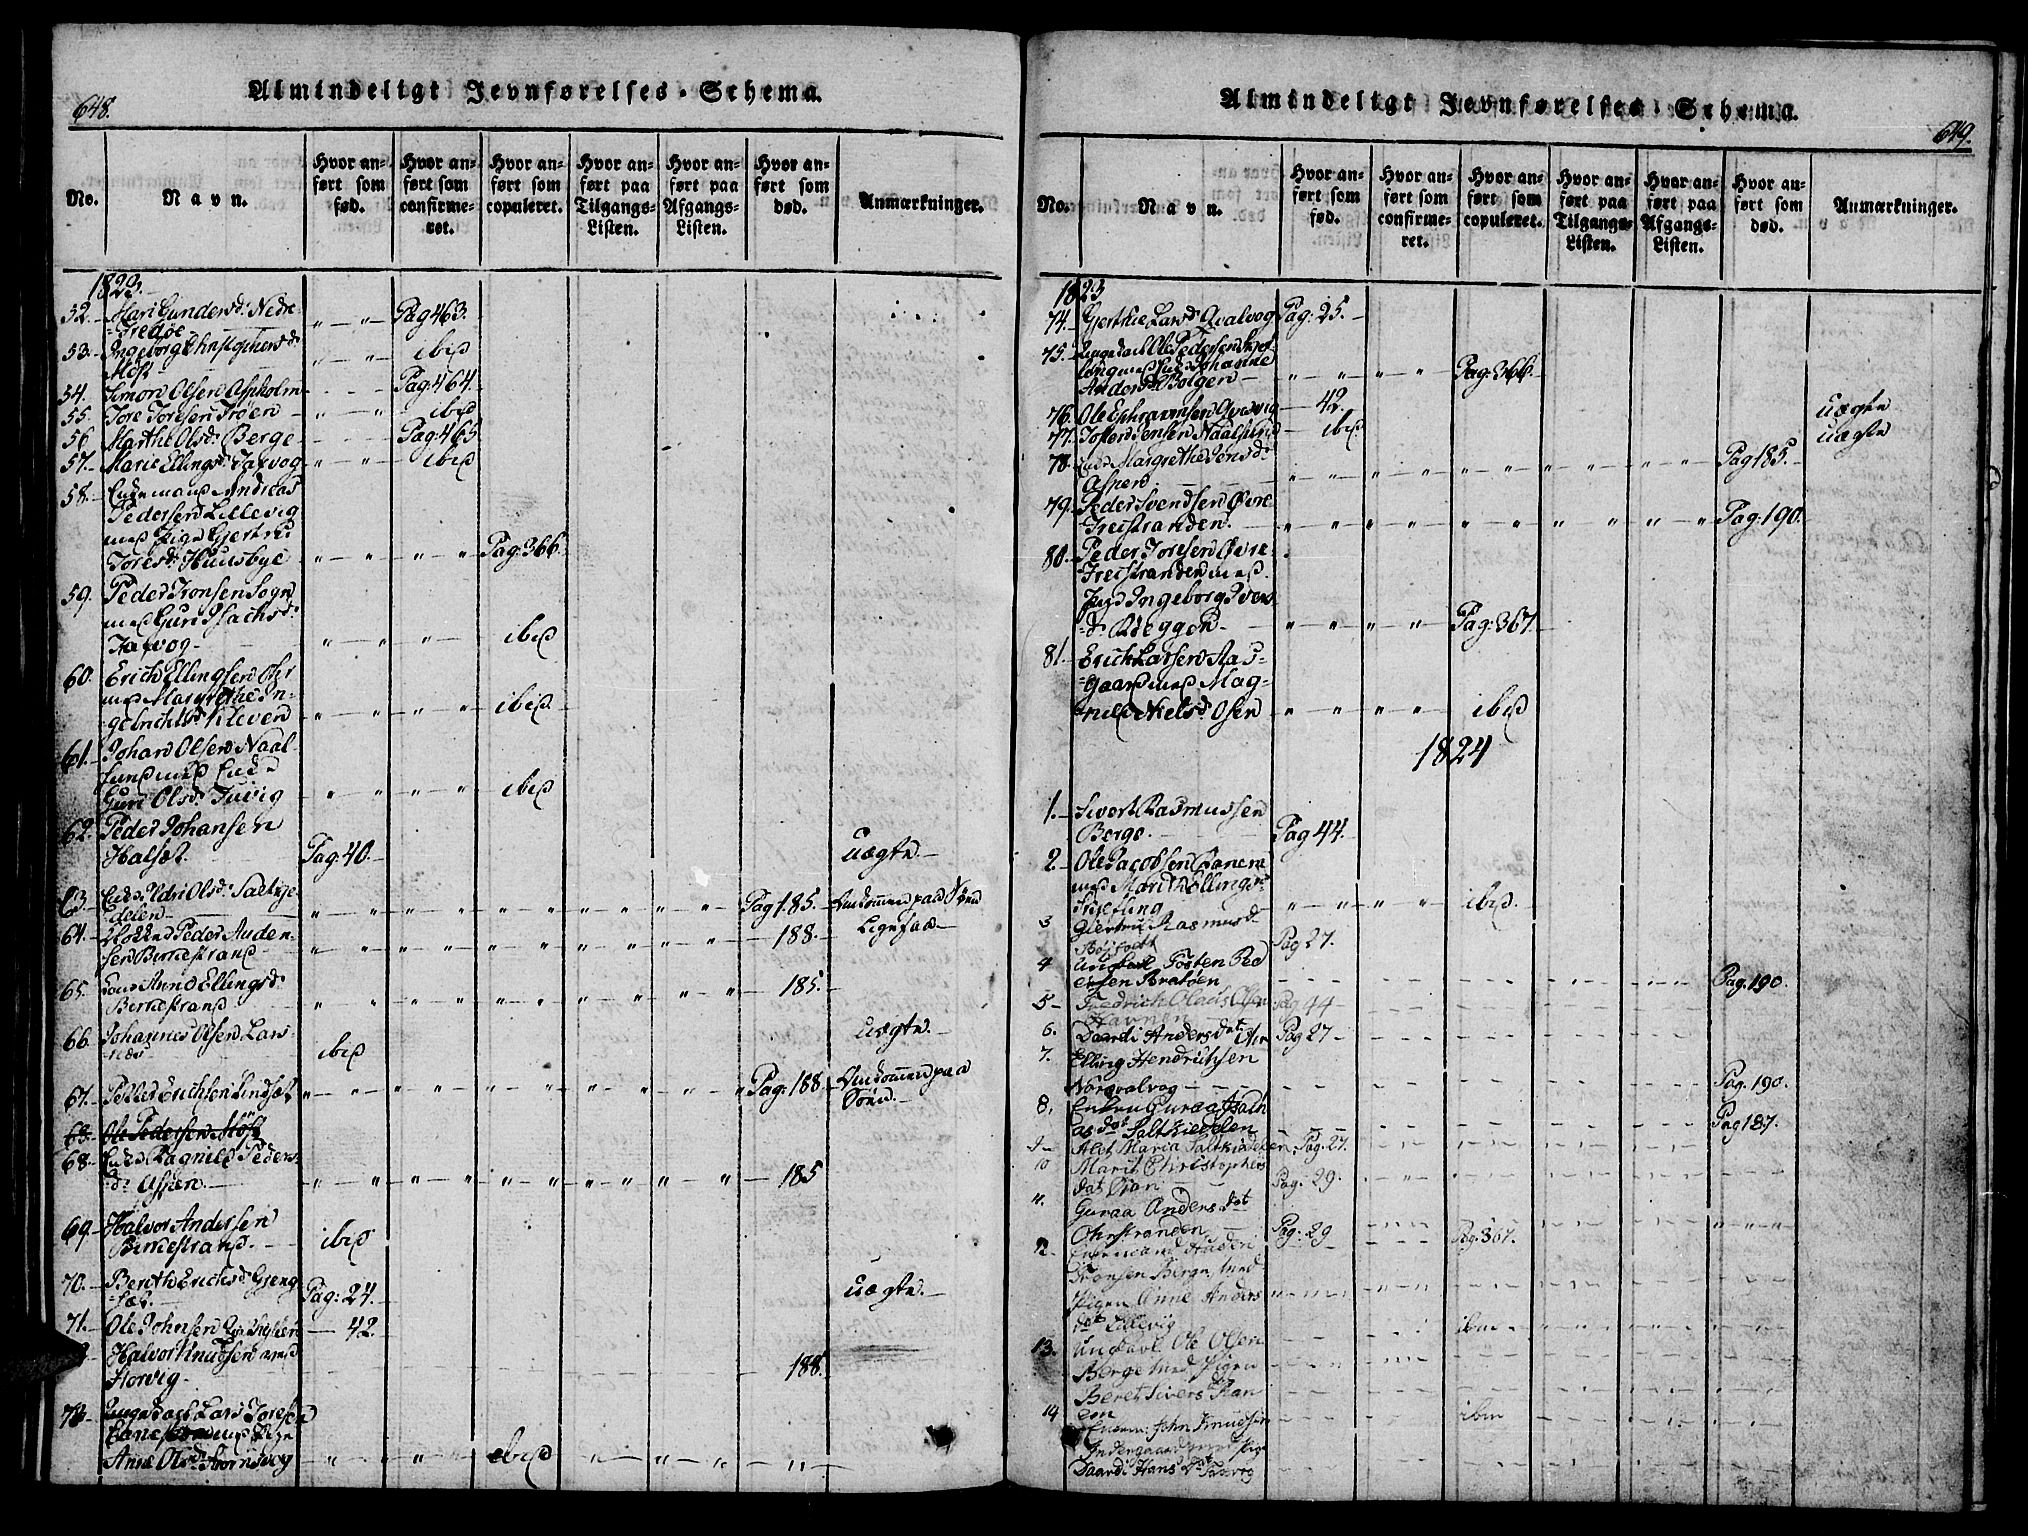 648.
Almindeligt Jevnførelses-Schema.
No.
Navn.
Hvor an-
ført som
fød.
Hvor an-
ført som
confirme-
ret.
Hvor an-
ført som
copuleret.
Hvor an-
ført paa
Tilgangs-
Listen.
Hvor an-
ført paa
Afgangs-
Listen.
Hvor an-
ført som
død.
Anmærkninger.
1823.
52. Mari Gundersd: Nedre Pag 463.
Fredøe
53. Ingeborg Christophersd: ibid
54. Simon Olsen Aspholm Pag: 464.
55. Tore Toresen Trøen ibid
56. Marthe Olsd: Berge Pag: 465
57. Marie Ellingsd: ibid
58. Enkemand Andreas
Pedersen Lillevig
med Pige Gjertrud
Toresd: Huusbye Pag: 366.
59. Peder Tronsen Sogn
med Guri Isachsd:
ibid
60. Erich Ellingsen
med Margrethe In-
gebrichtsd: Kleven ibid.
61. Johan Olsen Naal-
sund med Enke
Guri Olsd: ibid
62. Peder Johansen
Halset. Pag: 40. uægte.
63. Olsd:
delen Pag 185. Omkommen paa Søen
64. Peder Anden-
sen Birkestrand 188. Ligefaa
65. Anne Ellingsd:
Birkestrand 185.
66. Johannes Olsen Lars-
næs ibid uægte.
67. Peder Erichsen Lindset Pag: 188 Omkommen paa
Søen.
68. Ole Pedersen
68. Ragnild Peders-
d: Aspen 185
69. Halvor Andersen
Birkestrand. ibid
70. Bereth Erichsd: Gjeng-
set. Pag: 24. uægte.
71. Ole Johnsen 42.
Halvor Knudsen
Storvig 188.
Ungkarl Lars Toresen
med Pige
Anne Olsd: ibid
Almindeligt Jevnførelses-Schema.
649.
No.
Navn.
Hvor an-
ført som
fød.
Hvor an-
ført som
confirme-
ret.
Hvor an-
ført som
copuleret.
Hvor an-
ført paa
Tilgangs-
Listen.
Hvor an-
ført paa
Afgangs-
Listen.
Hvor an-
ført som
død.
Anmærkninger.
1823
74. Gjertrue Larsd: Qvalvog Pag: 25.
75. Ungkarl Ole Pedersen
Johanne
Andersd: Bolgen Pag: 366.
76. Ole Ephraimsen 42. uægte
77. Jensen Naalsund ibid uægte
78. Margrethe Jensd:
Aspen. Pag 185.
79. Peder Svendsen Øvre
Freistranden. Pag: 190.
80. Peder Toresen Øvre
Freistranden med
Ingeborg Ivers-
d: Pag: 367.
81. Erich Larsen Aas-
gaard med Mag-
nild Nielsd: Osen ibid
1824
1. Sivert Rasmussen
Berge. Pag 44.
2. Ole Jacobsen
med Marith Ellingsd:
ibid.
3 Giertrud Rasmusd:
Pag 27.
4 Ungkarl Tosten Ped
ersen Bratøen Pag. 190.
5 Fredrich Olaus Olsen Pag 44
Havnen
6. Daardi Andersdat Pag 27
7. Elling Hendrichsen
Nordqvalvog Pag. 190.
8. Enken Guraa Isach
as dat Saltkieddelen Pag 187.
9 Maria Saltkieddelen Pag. 27.
10 Marit Christophers
dat Pag. 29.
11. Guraa Anders dat
Ohrstranden Pag: 29 Pag. 367.
12. Enkemand
Tronsen Berge, med
Pigen Anne Anders
dat Lillevig ibm
13. Ungkarl Ole Olsen
Berge med Pigen
Beret Sivers
14 ibm
John Knudsen
Indergaard med Pig
Daardi Hans Dat